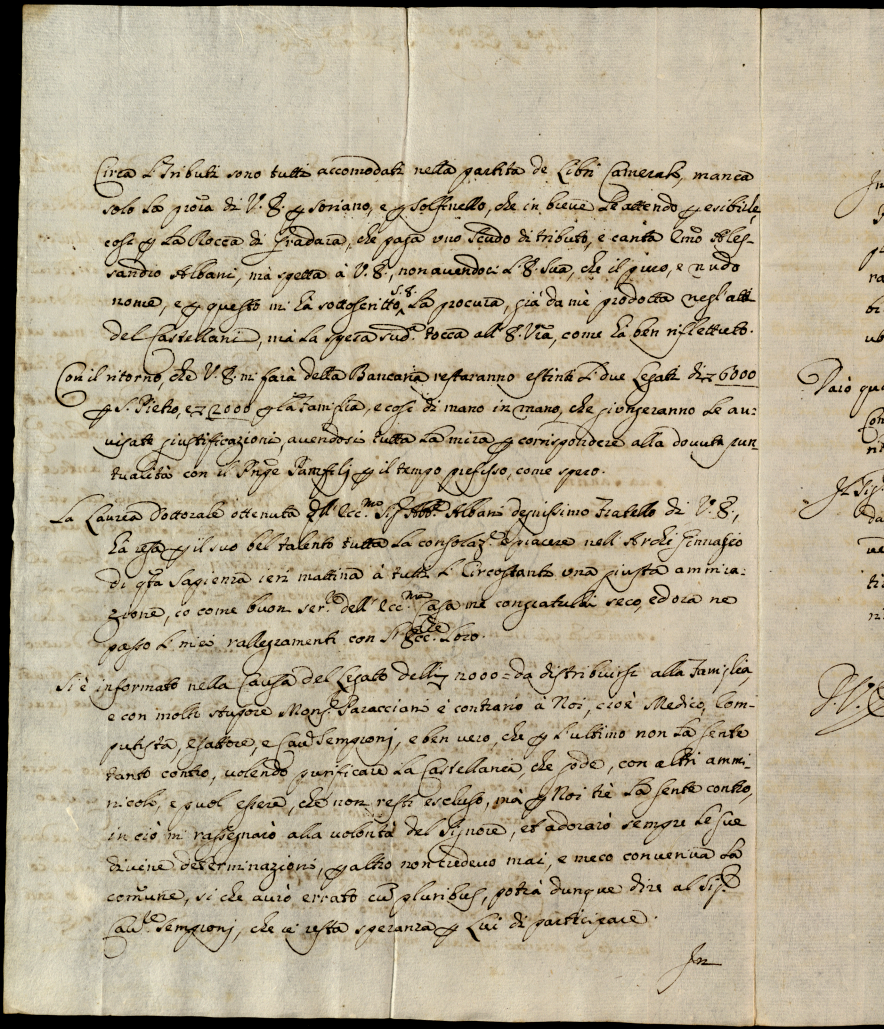 Circa L'Tributi sono tutti accomodati nella partita de Libri Camerali, manca
solo La prova di V. E. p Soriano, e p Solfinello, che in breve Le attendo p esibirle,
così p La Rocca di Gradara, che paga uno scudo di tributo, e canta Emo Ales-
sandro Albani, mà spetta à V. E., non avendoci L. E. Sua, che il puro, e nudo
nome, e p questo mi hà sottoscritto S. E. La procura, già da mè prodotta negl'atti
del Castellani, mà La spesa sud.a tocca all'E. Vra, come hà ben riflettuto.
Con il ritorno, che V. E. mi farà della Bancaria restaranno estinti L. due Legati di 6000
p S. Pietro, e 2000 p la Famiglia, e così di mano in mano, che giongeranno Le av-
visate giustificazioni, avendosi tutta La mira p corrispondere alla dovuta pun-
tualità con il Pnpe Pamfilj p il tempo prefisso, come spero.
La Laurea Dottorale ottenuta dall'Ecc.mo Sig. Abb. Albani degnissimo Fratello di V. E.,
hà resa p il suo bel talento tutta La consolaz.e e piacere nell'Archi Ginnasio
di qta Sapienza ieri mattina à tutti L. Circostanti una giusta ammira-
zione, io come buon ser.re dell'Ecc.ma Casa me congratulai seco, ed ora ne
passo L. miei rallegramenti con Ecc.ze Loro.
Si è informato nella Causa del Legato delli 12000 = da distribuirsi alla Famiglia,
e con molto stupore Mons.r Paracciani è contrario à Noi, cioè Medico, Com-
putista, Esattore, e Cav.e Sempronj, e ben vero, che p L'ultimo non La sente
tanto contro, volendo purificare La Castellania, che gode, con altri ammi-
nicoli, e puol essere, che non resti escluso, mà p Noi trè La sente contro,
in ciò mi rassegnarò alla volontà del Signore, et adorarò sempre Le sue
divine determinazioni, p altro non credevo mai, e meco conveniva La
comune, si che avrò errato cu pluribus, potrà dunque dire al Sig.r
Cav.re Sempronj, che vi resta speranza p Lui di participare.
In